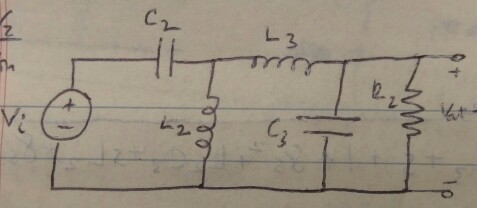 C₂
L₃
+
Vi
-
L₂
C₃
R₂
+
Vout
-